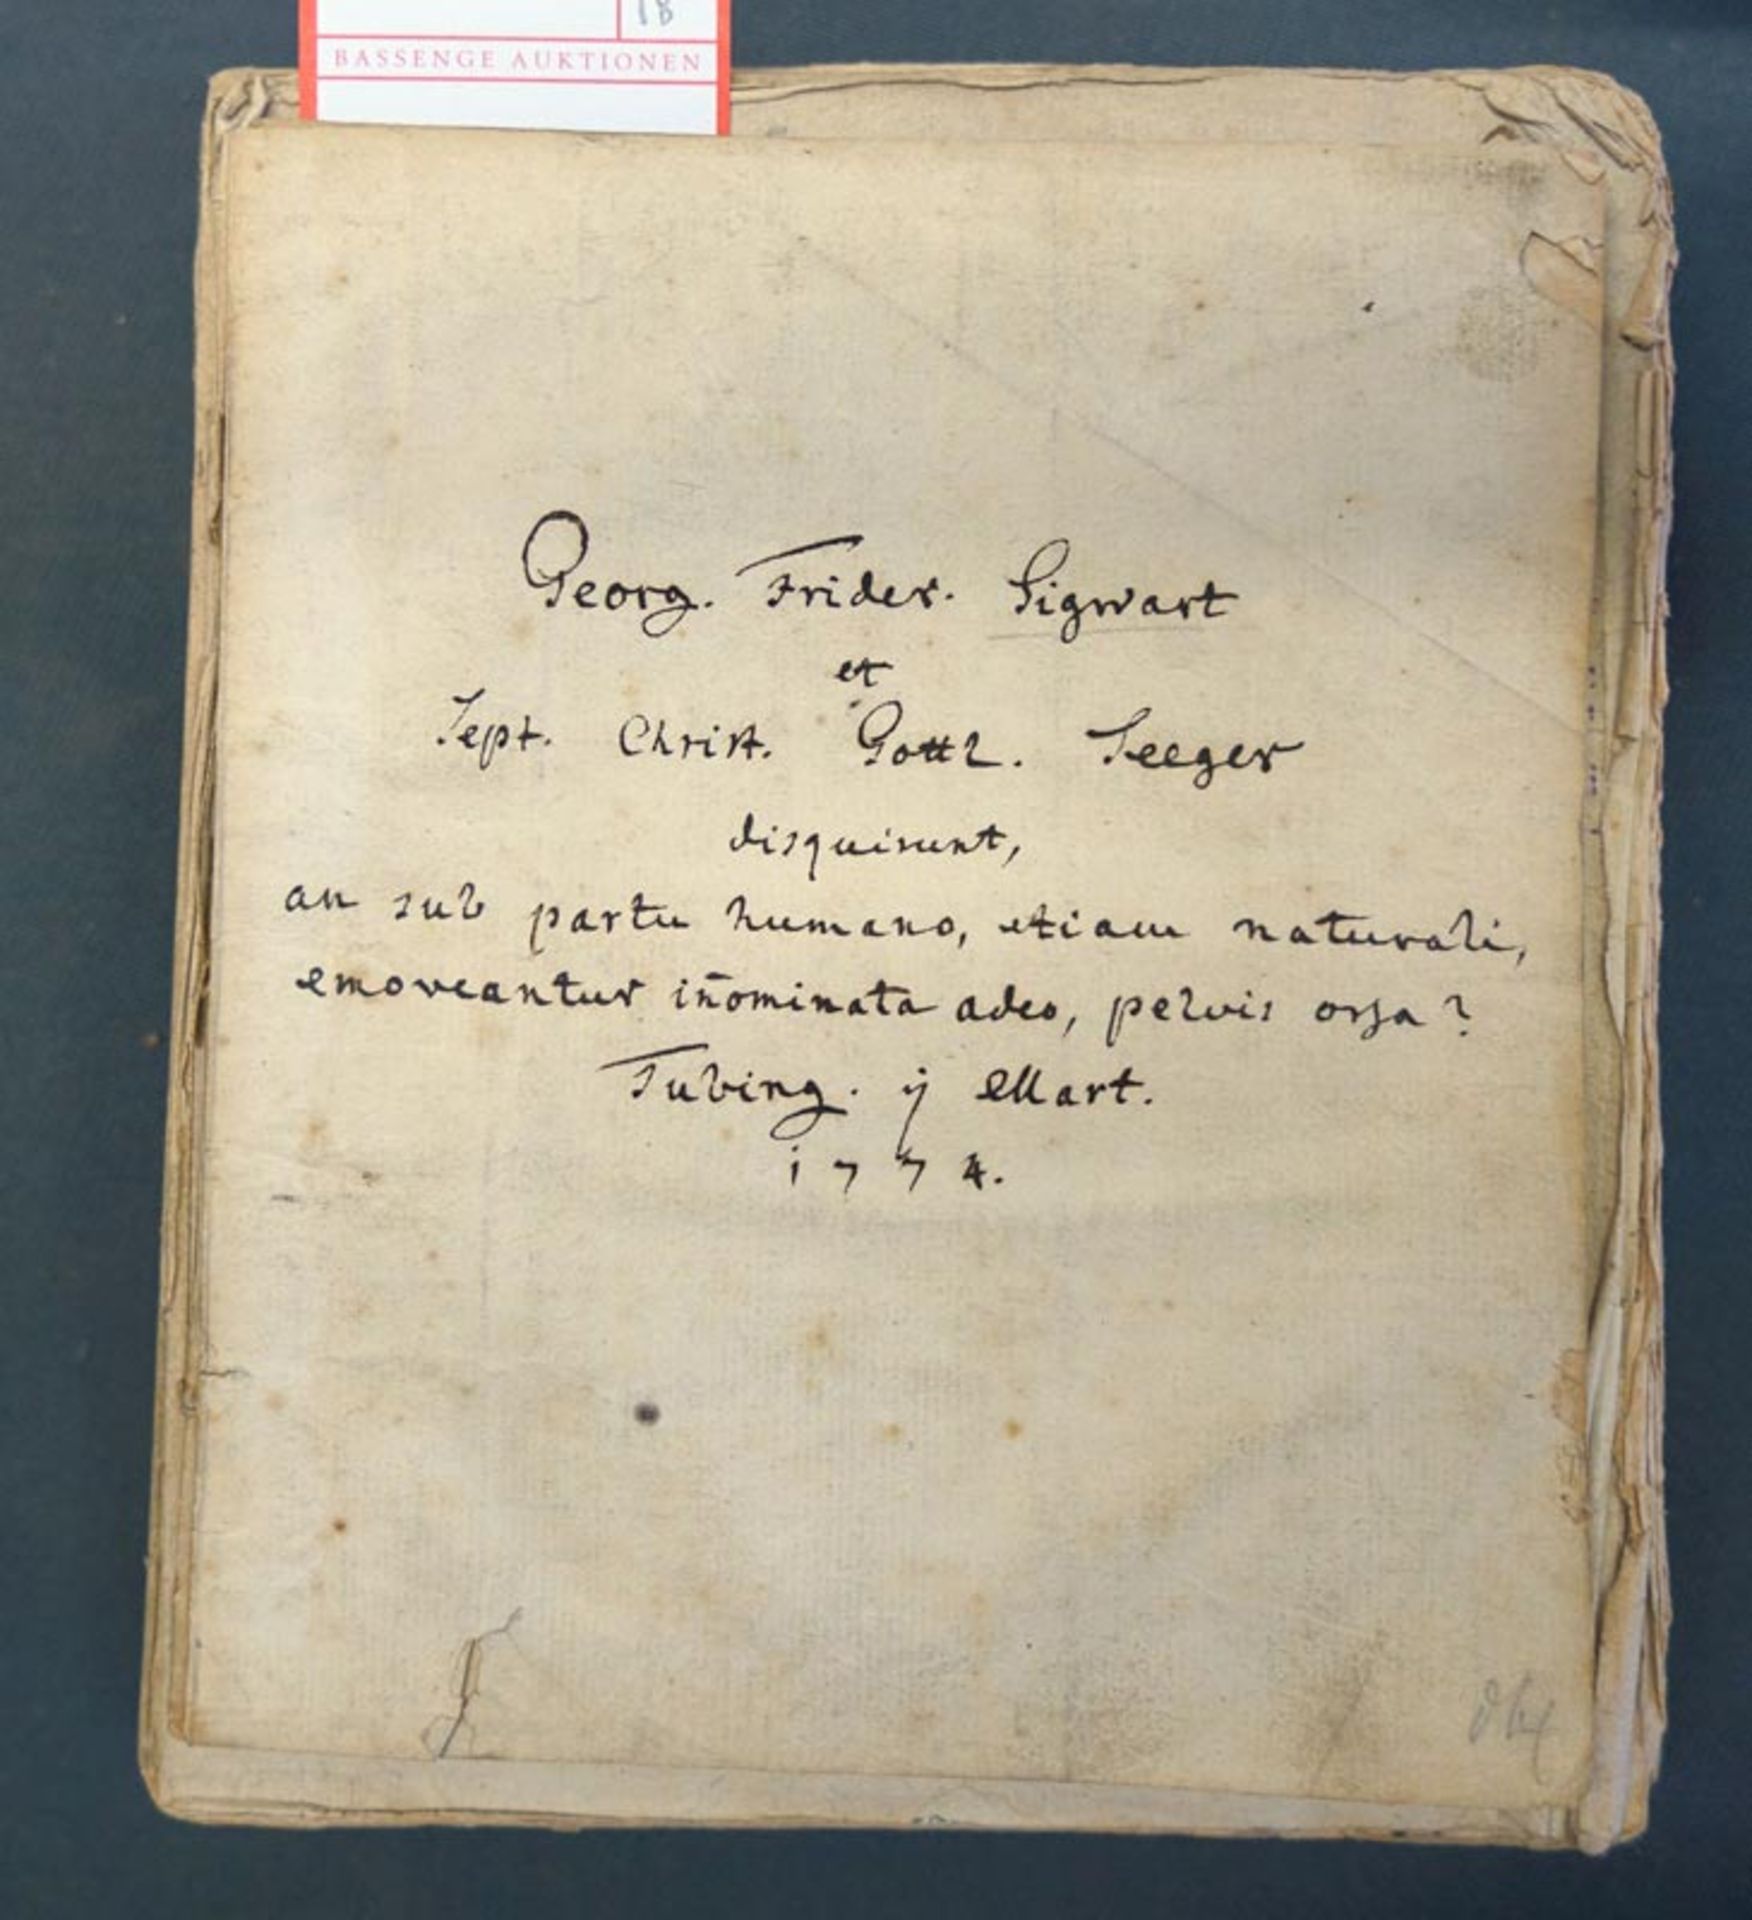 18
BASSENGE AUKTIONEN
Georg. Frider. Sigwart
et
Sept. Christ. Gottl. Seeger
disquirunt,
an sub partu humano, etiam naturali,
emoveantur iñominata adeo, pelvis ossa?
Tubing. ij Mart.
1774.